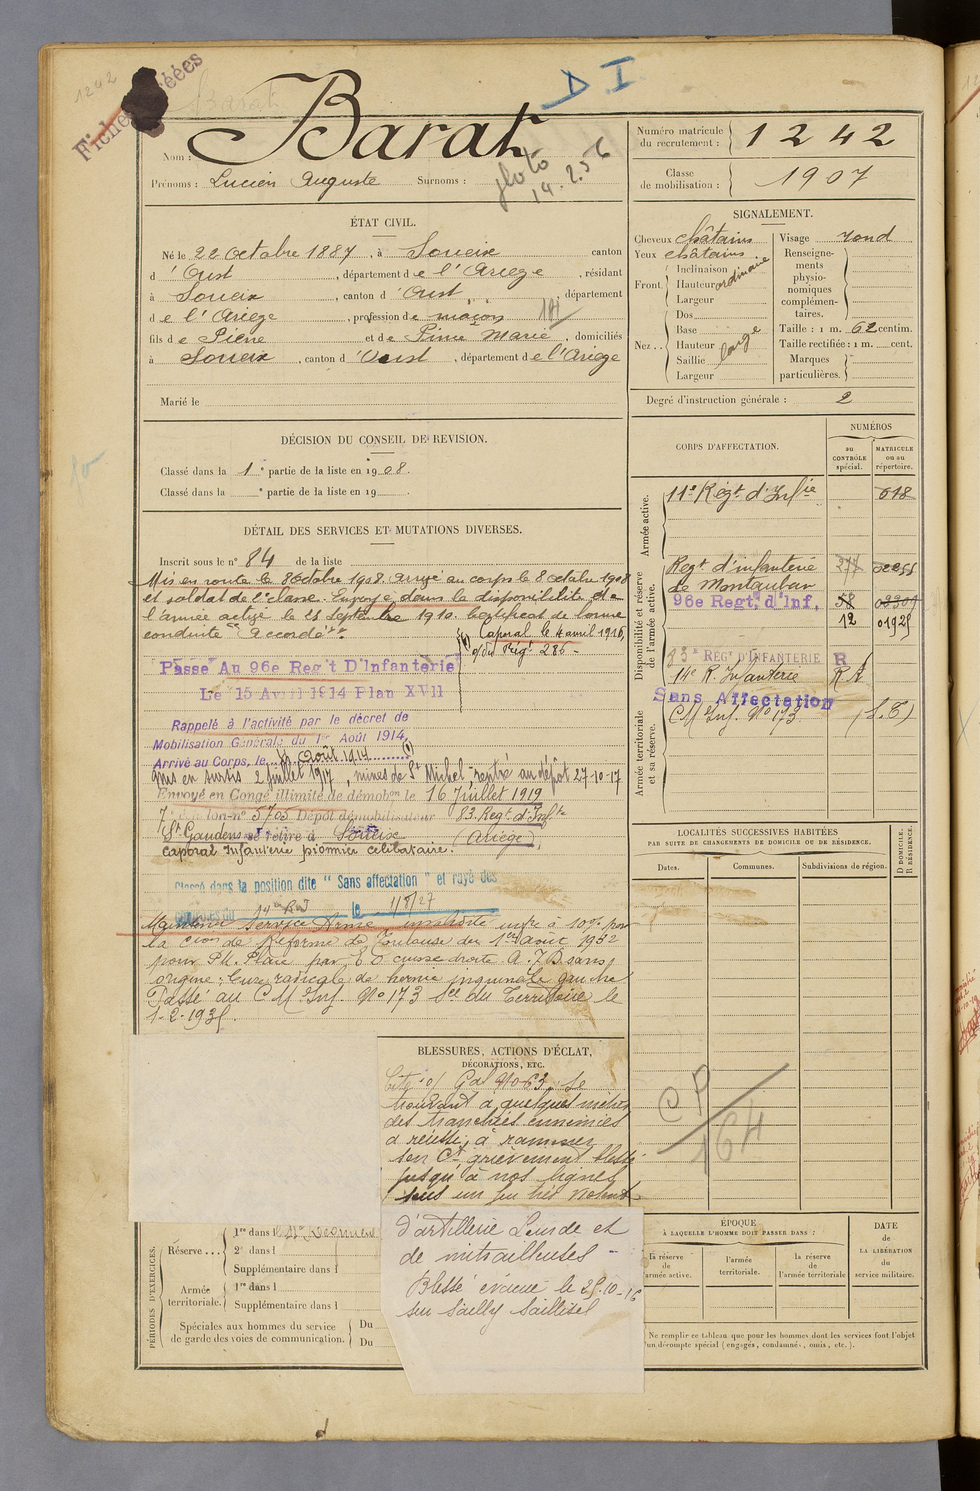 1242
Barat
D.I.
Nom : Barat
photo
14.2.56
Prénoms : Lucien Auguste Surnoms :
Numéro matricule du recrutement : 1242
Classe de mobilisation : 1907
ÉTAT CIVIL.
Né le 22 Octobre 1887, à Soueix canton
d'Oust, département de l'Ariège, résidant
à Soueix, canton d'Oust département
de l'Ariège, profession de maçon
fils de Pierre et de Pinu Marie, domiciliés
à Soueix, canton d'Oust, département de l'Ariège
Marié le
SIGNALEMENT.
Cheveux châtains
Yeux châtains
Front. Inclinaison
Hauteur ordinaire
Largeur
Nez.. Dos
Base
Hauteur large
Saillie
Largeur
Visage rond
Renseignements physionomiques complémentaires.
Taille : 1 m. 62 centim.
Taille rectifiée : 1 m. cent.
Marques particulières.
Degré d'instruction générale : 2
DÉCISION DU CONSEIL DE REVISION.
Classé dans la 1e partie de la liste en 1908.
Classé dans la e partie de la liste en 19
DÉTAIL DES SERVICES ET MUTATIONS DIVERSES.
Inscrit sous le n° 84 de la liste
Mis en route le 8 octobre 1908. Arrivé au corps le 8 octobre 1908
et soldat de 2e classe. Envoyé dans la disponibilité de
l'armée active le 25 septembre 1910. Certificat de bonne
conduite Accordé.
Caporal le 4 avril 1916,
Passé Au 96e Reg't D'Infanterie
Le 15 Avril 1914 Plan XVII
Rappelé à l'activité par le décret de
Mobilisation Générale du 1er Août 1914,
Arrivé au Corps, le Août 1914 (1)
Mis en sursis 2 juillet 1917, mines de St Michel, rentré au dépôt 27-10-17
Envoyé en Congé illimité de démobon le 16 Juillet 1919
7e échelon-n° 5705 Dépôt démobilisateur 83. Regt d'Infie
St Gaudens se retire à Soueix (Ariège),
Caporal Infanterie pionnier célibataire.
Classé dans la position dite "Sans affectation" et rayé des
contrôles du 14e R.I. le 1/8/27
Maintenu Service Armé invalidité infre à 10% par
la Cion de Réforme de Toulouse du 1er août 1932
pour Pl. Plaie par E.O cuisse droite A.7.B sans
origine : Cure radicale de hernie inguinale gauche
Passé au C M Inf. No 173 Son du Territoire le
1-2-1935.
CORPS D'AFFECTATION.
NUMÉROS
au CONTRÔLE spécial.
MATRICULE ou au répertoire.
Armée active.
11e Régt d'Infie 018
Disponibilité et réserve de l'armée active.
Regt d'infanterie
de Montauban
96e Regt. d'Inf. 58
12 01925
83e RÉGt D'INFANTERIE R
14e R. Infanterie R A
Sans Affectation
Armée territoriale et sa réserve.
C M Inf. No 173 (S.T)
LOCALITÉS SUCCESSIVES HABITÉES
PAR SUITE DE CHANGEMENTS DE DOMICILE OU DE RÉSIDENCE.
Dates. Communes. Subdivisions de région.
D DOMICILE. R RÉSIDENCE.
CP
164
BLESSURES, ACTIONS D'ÉCLAT,
DÉCORATIONS, ETC.
Cité o/ Gal No 63. Se
trouvant à quelques mètres
des tranchées ennemies
a réussi à ramener
son Ct grièvement blessé
jusqu'à nos lignes
sous un feu très violent
d'artillerie lourde et
de mitrailleuses
Blessé évacué le 25-10-16
sur Sailly Saillisel
PÉRIODES D'EXERCICES.
Réserve ... 1re dans l
2e dans l
Supplémentaire dans l
Armée territoriale. 1re dans l
Supplémentaire dans l
Spéciales aux hommes du service de garde des voies de communication. Du
Du
ÉPOQUE
À LAQUELLE L'HOMME DOIT PASSER DANS :
la réserve de l'armée active.
l'armée territoriale.
la réserve de l'armée territoriale
DATE DE LA LIBÉRATION du service militaire.
Ne remplir ce tableau que pour les hommes dont les services font l'objet
d'un décompte spécial (engagés, condamnés, omis, etc.).